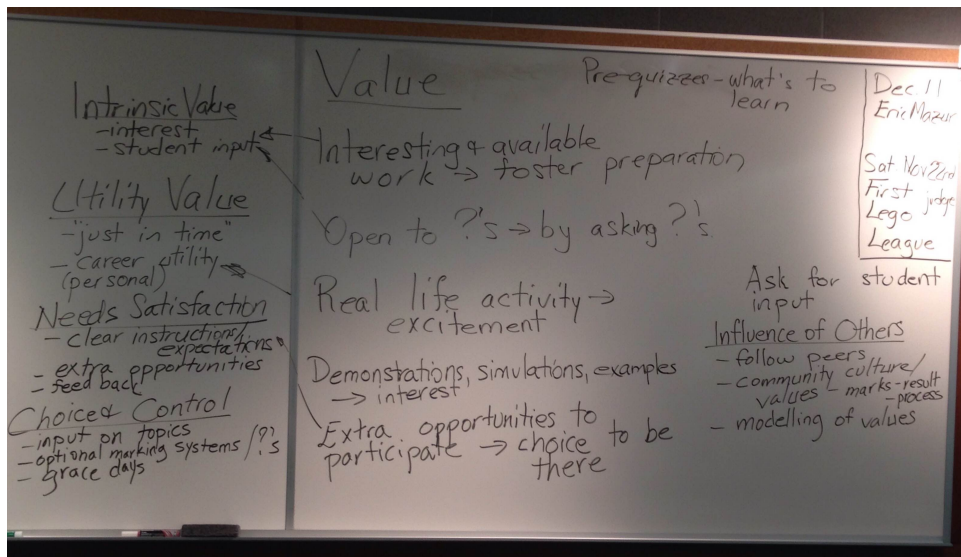 Intrinsic Value
- interest
- student input
Utility Value
- "just in time"
- career utility
(personal)
Needs Satisfaction
- clear instructions/
expectations
- extra opportunities
- feed back
Choice & Control
- input on topics
- optional marking systems /?'s
- grace days
Value
Pre-quizzes - what's to
learn
Interesting & available
work → foster preparation
Open to ?'s → by asking ?'s
Real life activity →
excitement
Demonstrations, simulations, examples
→ interest
Extra opportunities to
participate → choice to be
there
Dec. 11
Eric Mazur
Sat. Nov 23rd
First judge
Lego
League
Ask for student
input
Influence of Others
- follow peers
- community culture/
values - marks - result
- process
- modelling of values